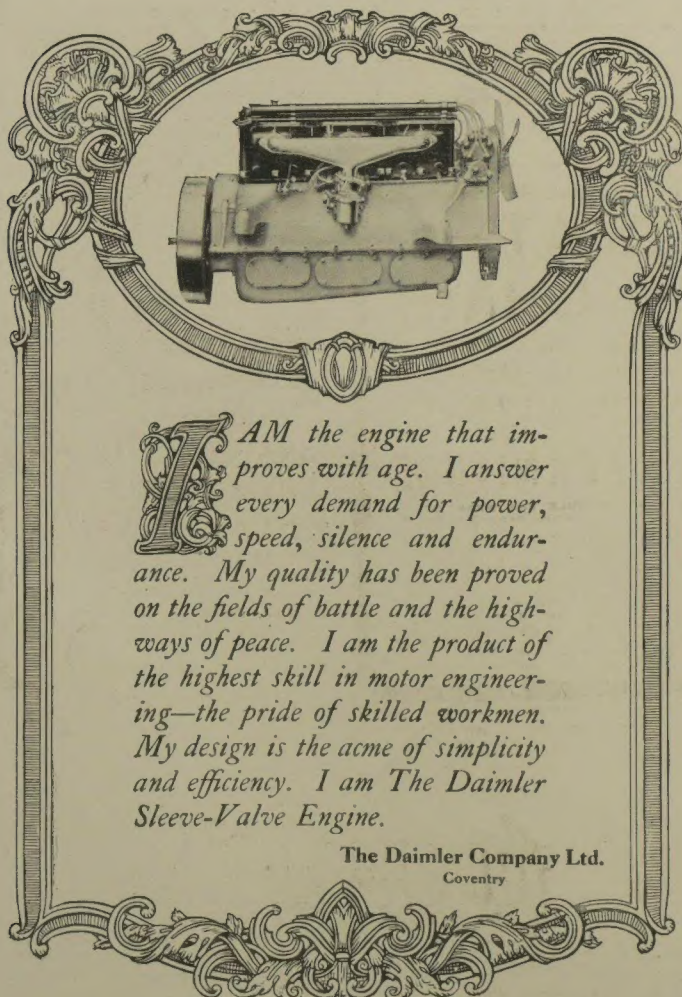 I AM the engine that im-
proves with age. I answer
every demand for power,
speed, silence and endur-
ance. My quality has been proved
on the fields of battle and the high-
ways of peace. I am the product of
the highest skill in motor engineer-
ing—the pride of skilled workmen.
My design is the acme of simplicity
and efficiency. I am The Daimler
Sleeve-Valve Engine.
The Daimler Company Ltd.
Coventry